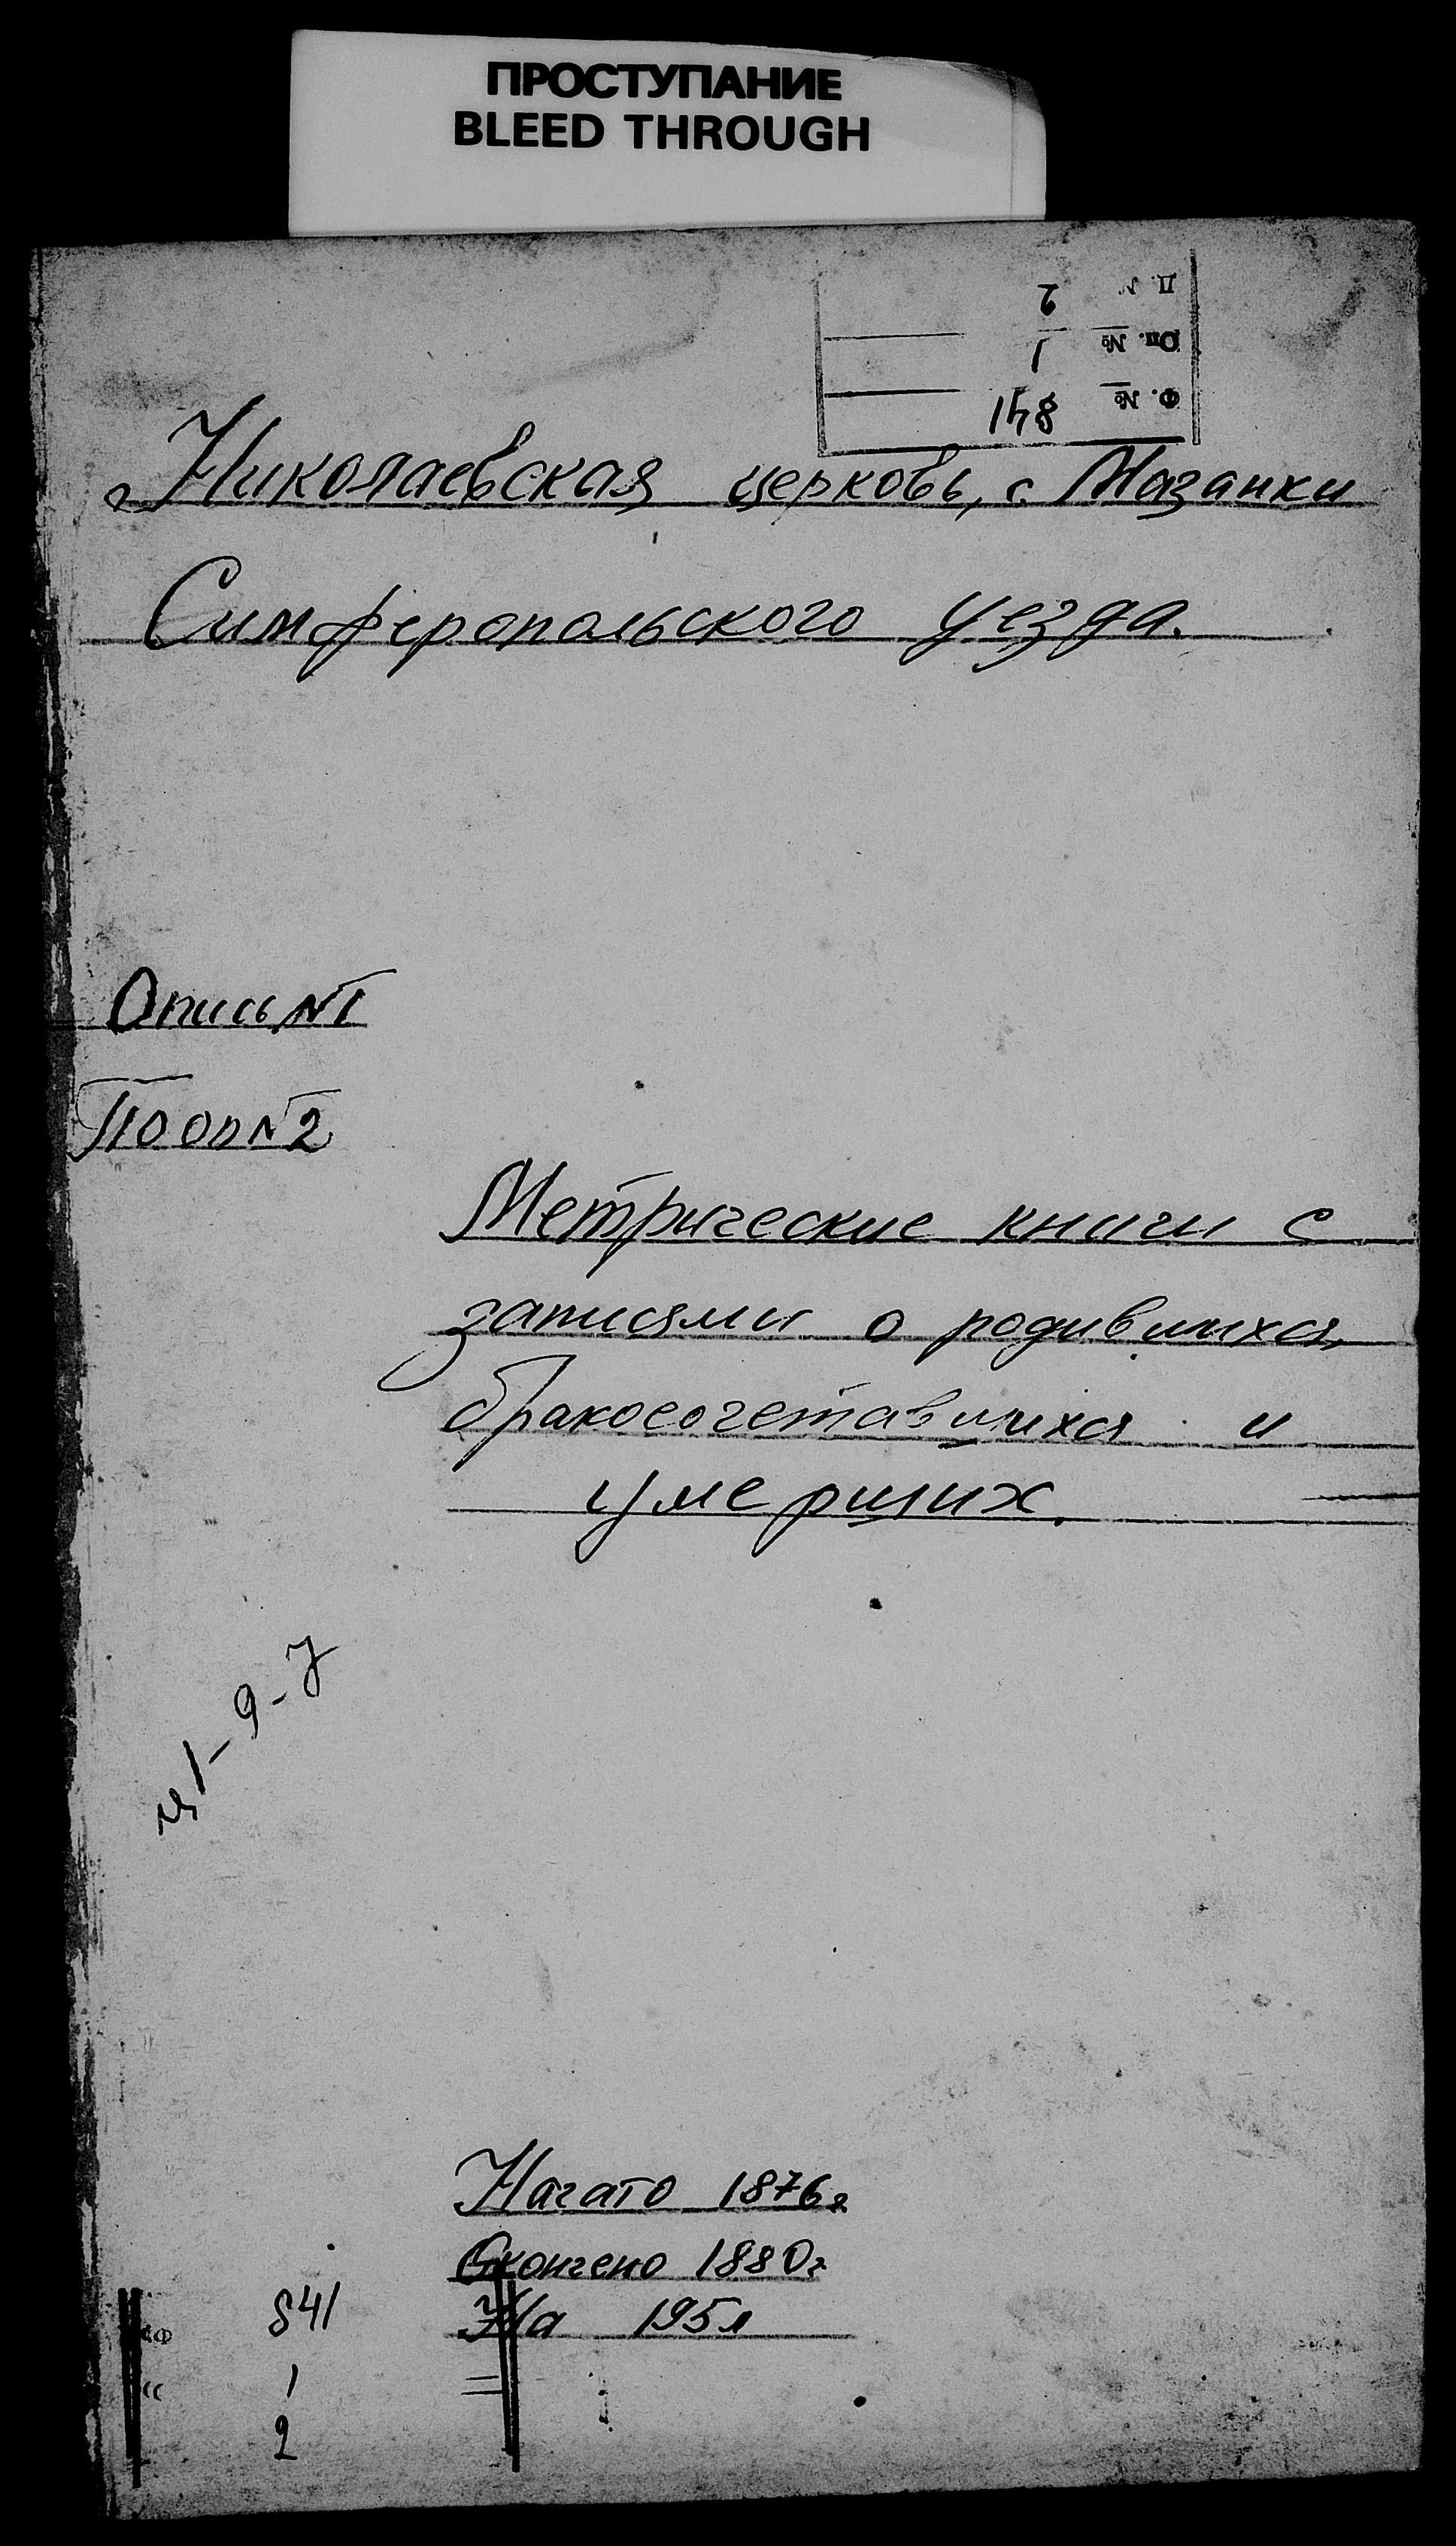 ПРОСТУПАНИЕ
BLEED THROUGH
Д. № 2
Оп. № 1
Ф. № 841
Николаевская церковь, с. Мазанки
Симферопольского уезда.
Опись №1
По оп №2
Метрические книги с
записями о родившихся,
бракосочетавшихся и
умерших.
1-9-7
Начато 1876г
Окончено 1880г
841 На 195л
1
2